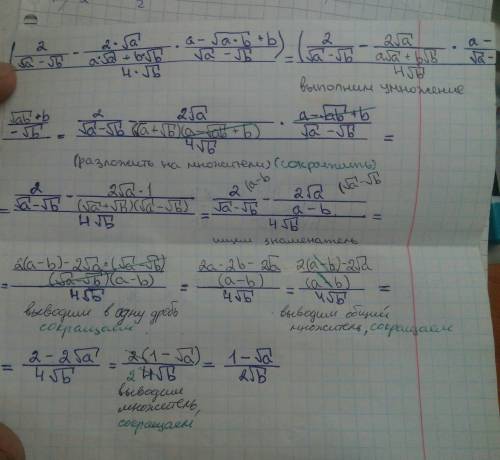 (2/(√a-√b) - (2·√a)/(a·√a+b·√b) · (a-√a·b+b)/(√a-√b))/(4·√b) = (2/(√a-√b) - 2√a/(a√a+b√b) · a-
выполним умножение
√ab+b/-√b = 2/(√a-√b) 2√a/((√a+√b)(a-√ab+b)) · (a-√ab+b)/(√a-√b) / 4√b =
(разложить на множители) (сократить)
= (2/(√a-√b) - (2√a·1)/((√a+√b)(√a-√b)))/(4√b) = (2 (a-b/(√a-√b) - 2√a (√a-√b/(a-b))/(4√b) =
ищем знаменатель
= (2(a-b)-2√a·(√a-√b)/((√a-√b)(a-b)))/(4√b) = ((2a-2b-2√a)/(a-b))/(4√b) = ((2(a-b)-2√a)/(a-b))/(4√b) =
выводим в одну дробь выводим общий
сокращаем множитель, сокращаем
= (2-2√a)/(4√b) = (2·(1-√a))/(2 4√b) = (1-√a)/(2√b)
выводим
множитель,
сокращаем